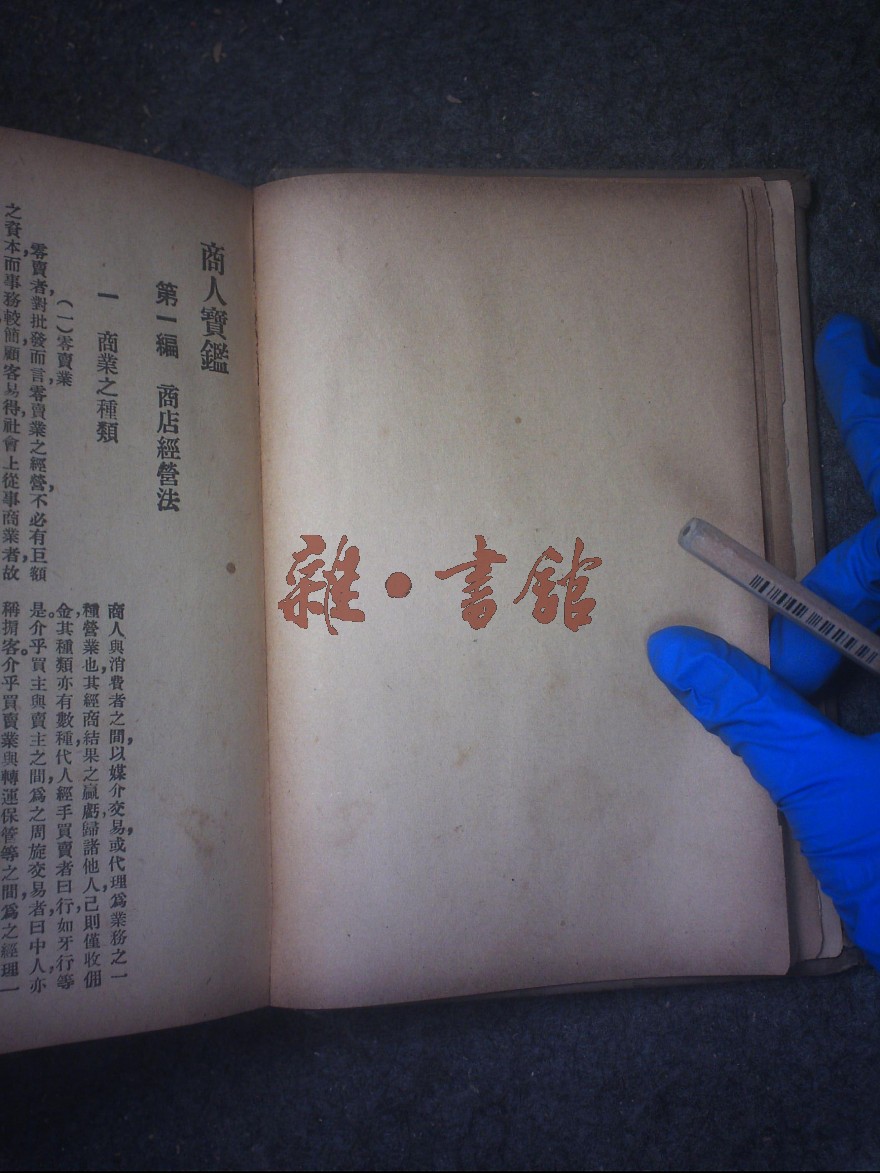 商人寶鑑
第一編　商店經營法
一　商業之種類
（一）零賣業
零賣者，對批發而言，零賣業之經營，不必有巨額
之資本，而事務較簡，顧客易得，社會上從事商業者，故
商人與消費者之間，以媒介交易，或代理爲業務之一
種營業也，其經商結果之贏虧，歸諸他人，己則僅收佣
金，其種類亦有數種，代人經手買賣者曰行，如牙行等
是。介乎買主與賣主之間，爲之周旋交易者，曰中人，亦
稱掮客。介乎買賣業與轉運保管等之間，爲之經理一
雜•書館